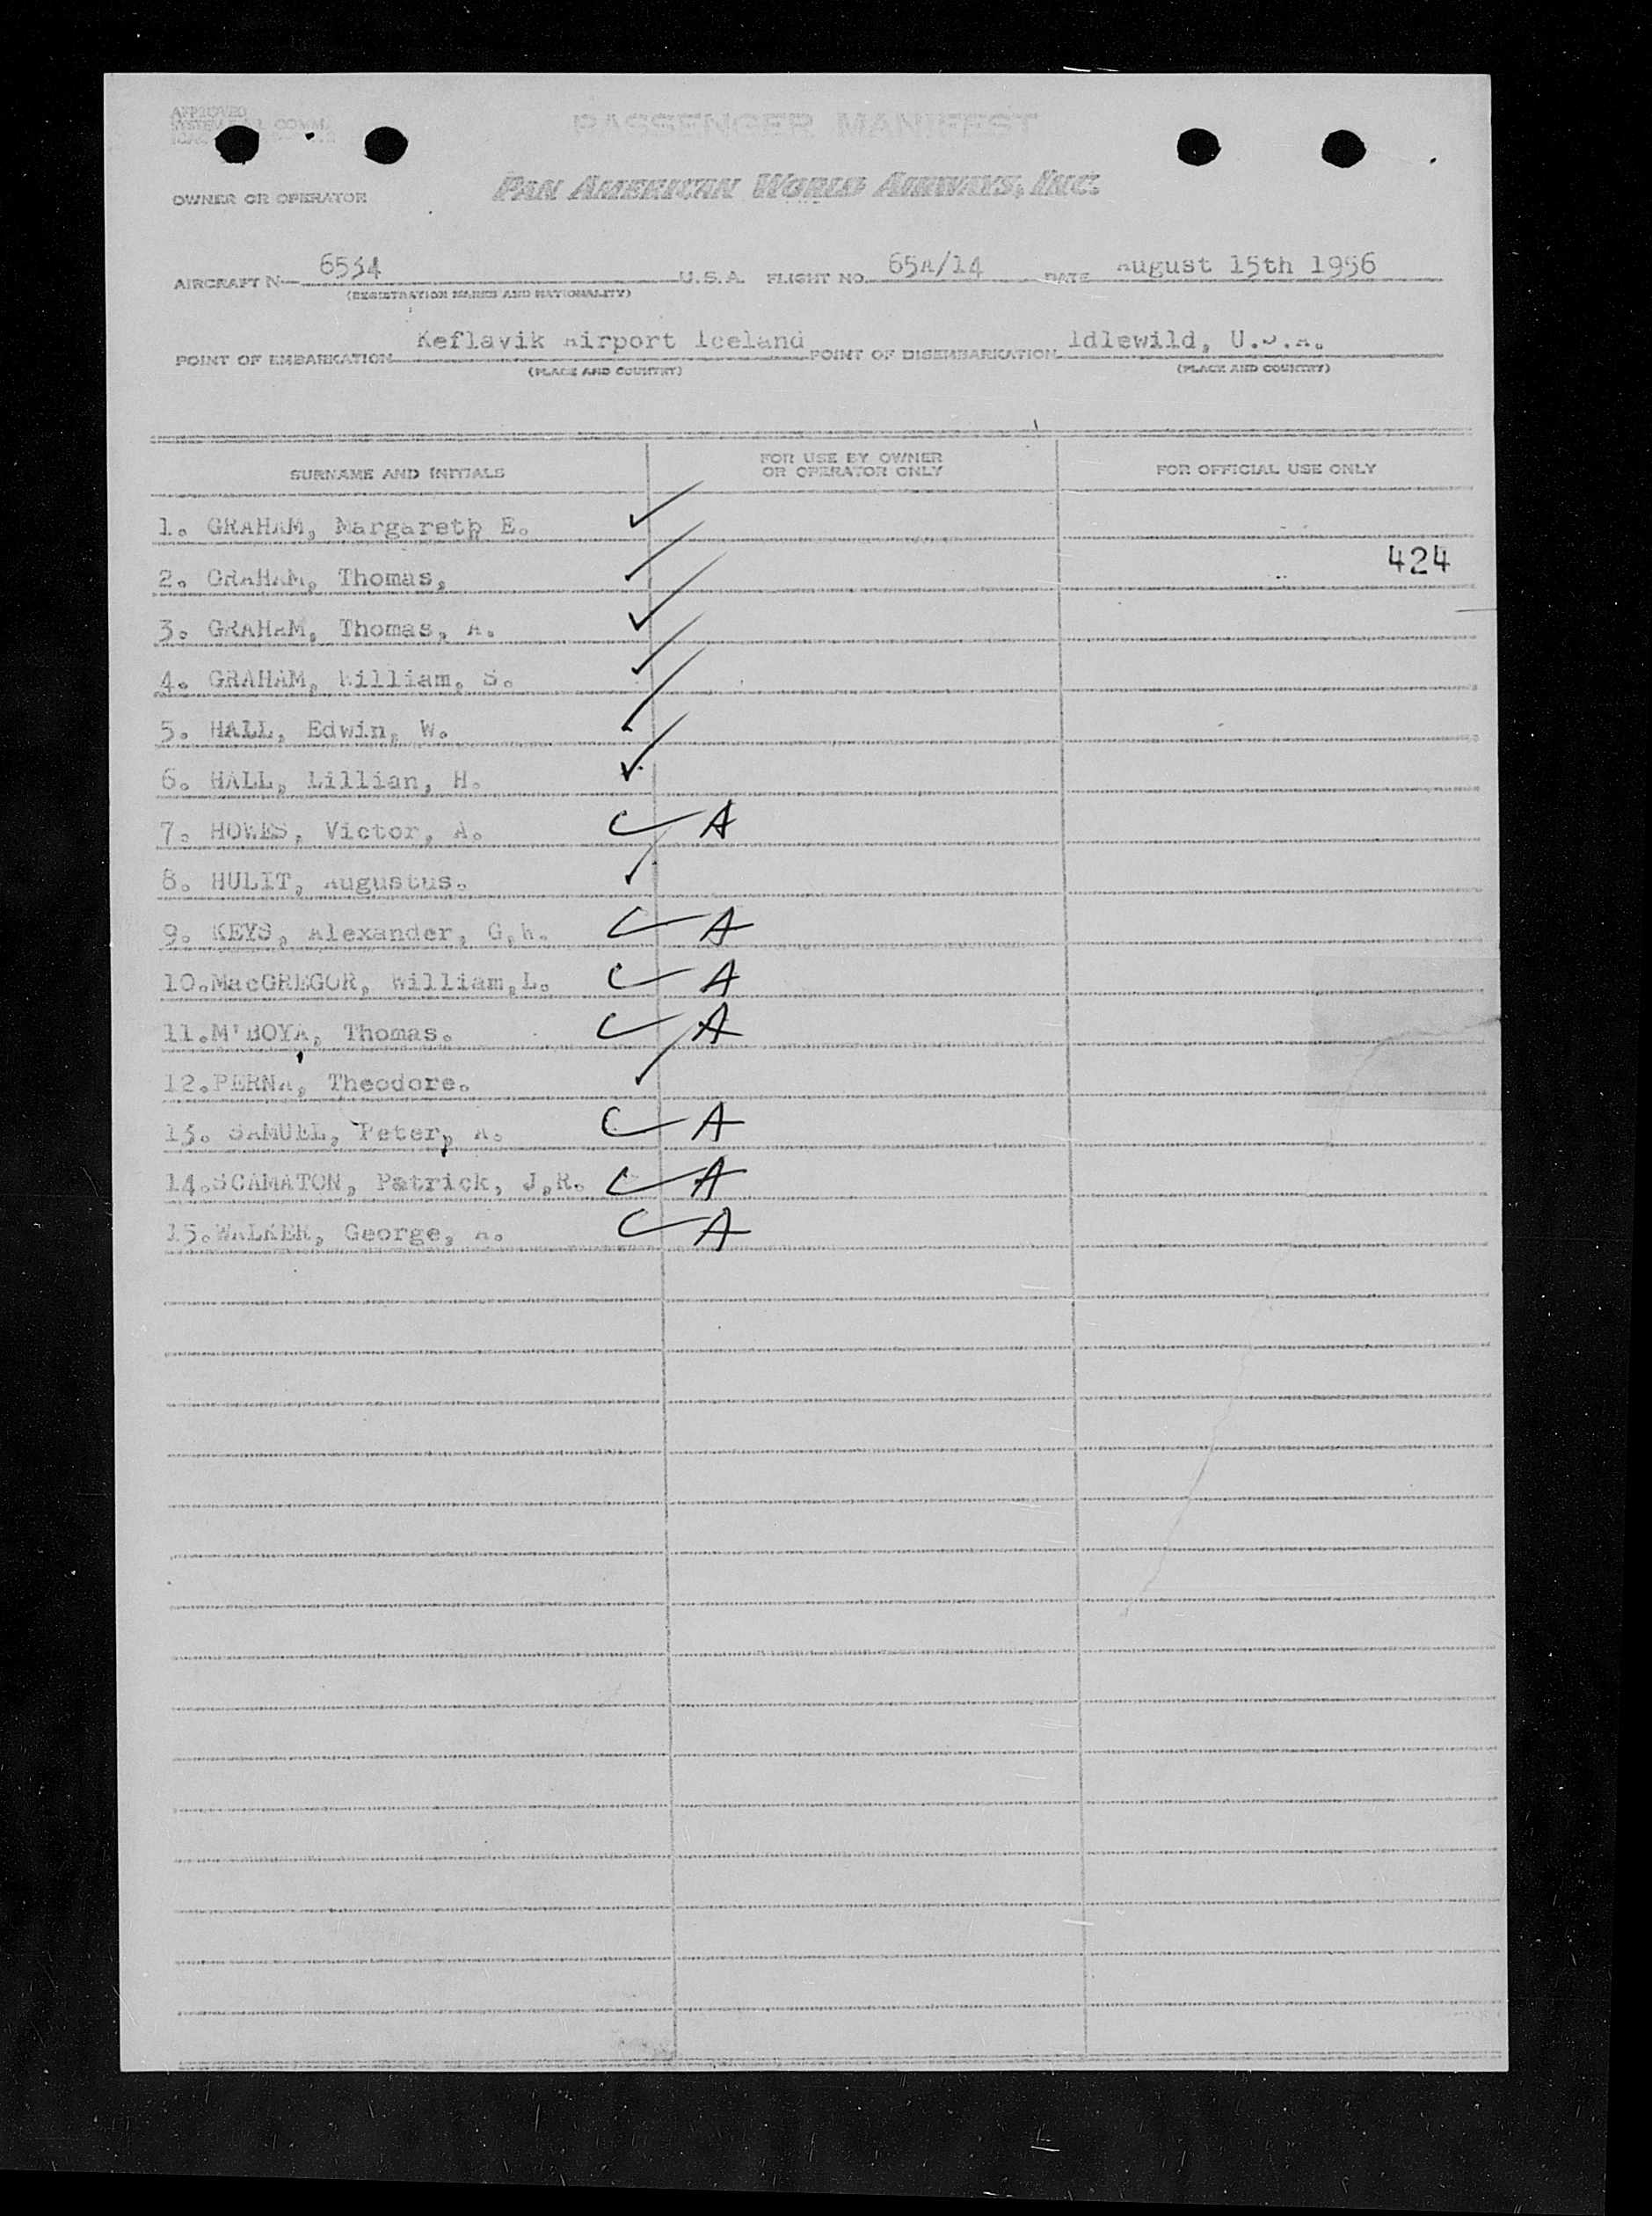 APPROVED
SYSTEM COMM.
PASSENGER MANIFEST
OWNER OR OPERATOR PAN AMERICAN WORLD AIRWAYS, INC.
AIRCRAFT N— 6534 U.S.A. FLIGHT NO. 65A/14 DATE August 15th 1956
(REGISTRATION MARKS AND NATIONALITY)
POINT OF EMBARKATION Keflavik Airport Iceland POINT OF DISEMBARKATION Idlewild, U.S.A.
(PLACE AND COUNTRY) (PLACE AND COUNTRY)
SURNAME AND INITIALS FOR USE BY OWNER OR OPERATOR ONLY FOR OFFICIAL USE ONLY
1. GRAHAM, Margareth E. ✓
424
2. GRAHAM, Thomas,
3. GRAHAM, Thomas, A. ✓
4. GRAHAM, William, S. ✓
5. HALL, Edwin, W. ✓
6. HALL, Lillian, H. ✓
7. HOWES, Victor, A. ✓ A
8. HULIT, Augustus. ✓
9. KEYS, Alexander, G,h. ✓ A
10.MacGREGOR, William,L. ✓ A
11.M'BOYA, Thomas. ✓ A
12.PERNA, Theodore. ✓
13. SAMUEL, Peter, A. ✓ A
14.SCAMATON, Patrick, J,R. ✓ A
15.WALKER, George, A. ✓ A